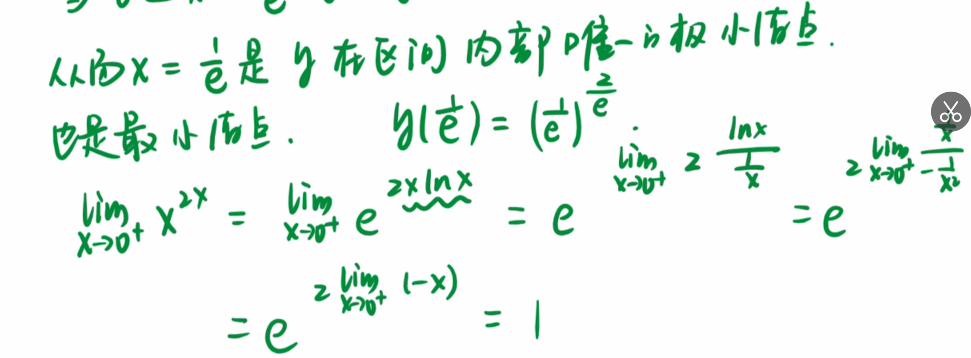 从而 x = 1/e 是 y 在区间内部唯一的极小值点.
也是最小值点. y(1/e) = (1/e)^(2/e).
lim_(x→0⁺) x^(2x) = lim_(x→0⁺) e^(2x ln x) = e^(lim_(x→0⁺) 2 (ln x)/(1/x)) = e^(2 lim_(x→0⁺) (1/x)/(-1/x²))
= e^(2 lim_(x→0⁺) (-x)) = 1